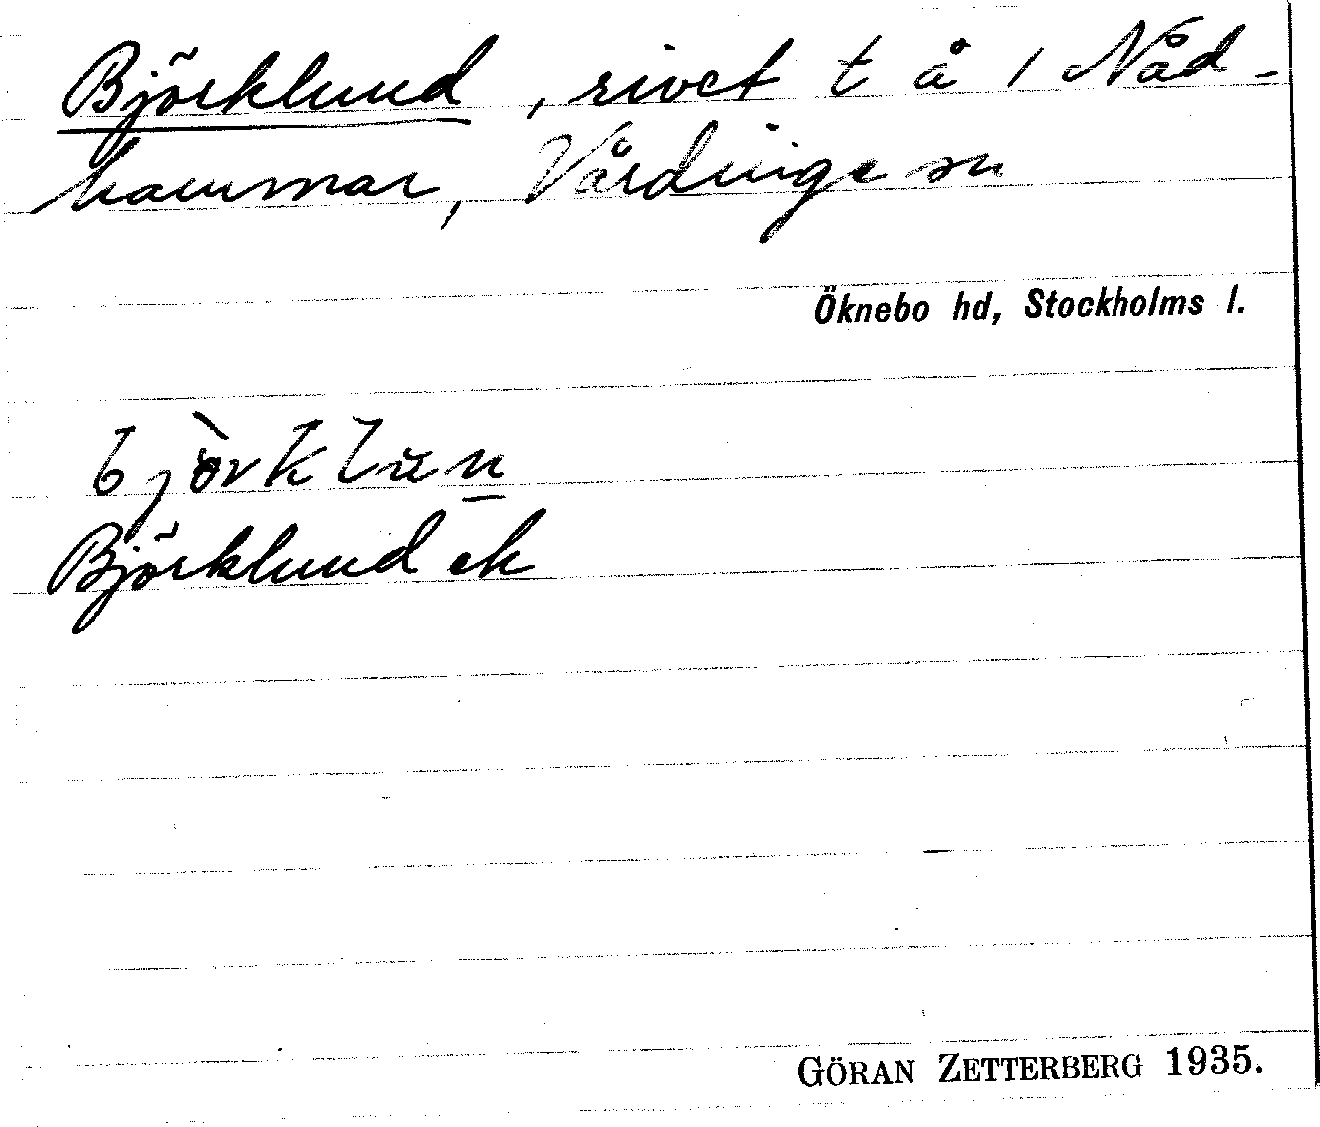 Björklund, rivet t å 1 Nåd-
hammar, Vårdinge sn
Öknebo hd, Stockholms l.
bjòrklun
Björklund ek
GÖRAN ZETTERBERG 1935.